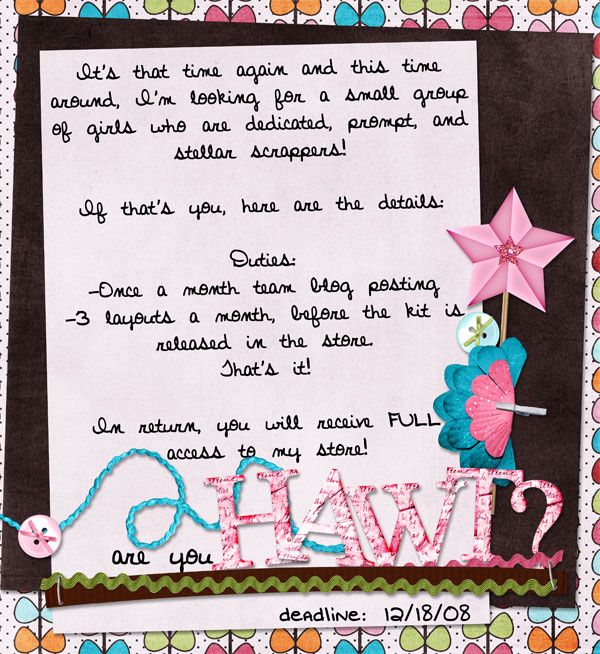 It's that time again and this time
around, I'm looking for a small group
of girls who are dedicated, prompt, and
stellar scrappers!
If that's you, here are the details:
Duties:
-Once a month team blog posting
-3 layouts a month, before the kit is
released in the store.
That's it!
In return, you will receive FULL
access to my store!
are you HAWT?
deadline: 12/18/08